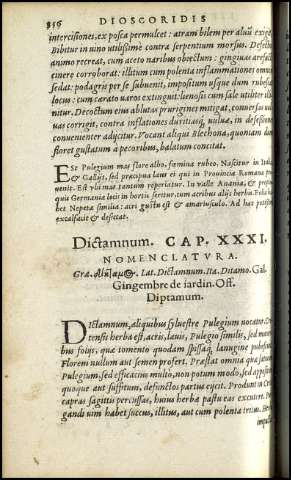 836 DIOSCORIDIS
intercisiones, ex posca permulcet: atram bilem per aluū exigit.
Bibitur in uino utilißimè contra serpentium morsus. Defectos
animo recreat, cum aceto naribus obiectum: gingiuas arefactū
cinere corroborat: illitum cum polenta inflammationes omnes
sedat: podagris per se subuenit, impositum usque dum rubescat
locus: cum cerato uaros extinguit: lienosis cum sale utiliter illi-
nitur. Decoctum eius ablutas prurigines mitigat, conuersas uul-
uas corrigit, contra inflationes duritiasq; uuluæ, in desessione
conuenienter adijcitur. Vocant aliqui Blechona, quoniam dum
floret gustatum a pecoribus, balatum concitat.
EST Pulegium mas flore albo, fœmina rubeo. Nascitur in Italia,
& Gallijs, sed præcipuæ laus ei qui in Prouincia Romana
uenit. Est ubi mas tantum reperiatur. In ualle Anania, &
quis Germaniæ locis in hortis seritur cum acribus alijs herbis. Folia
bet Nepetæ similia: acri gustu est & amariusculo. Ad hæc potenter
excalfacit & desiccat.
Dictamnum. CAP. XXXI.
NOMENCLATVRA.
Græ. Lat. Dictamnum. Ita. Ditamo. Gal.
Gingembre de iardin. Off.
Diptamum.
DIctamnum, aliquibus syluestre Pulegium uocatur.
tensis herba est, acris, læuis, Pulegio similis, sed
bus folijs, quæ tomento quodam spissaq; lanugine pubescunt.
Florem nullum aut semen profert. Præstat omnia quæ satiuum
Pulegium, sed efficacius multo, non potum modò, sed appositum
quoque aut suffitum, defunctos partus eijcit. Produnt in Creta
capras sagittis percussas, huius herbæ pastu eas excutere. Pur-
gandi uim habet succus, illitus, aut cum polenta tritus.